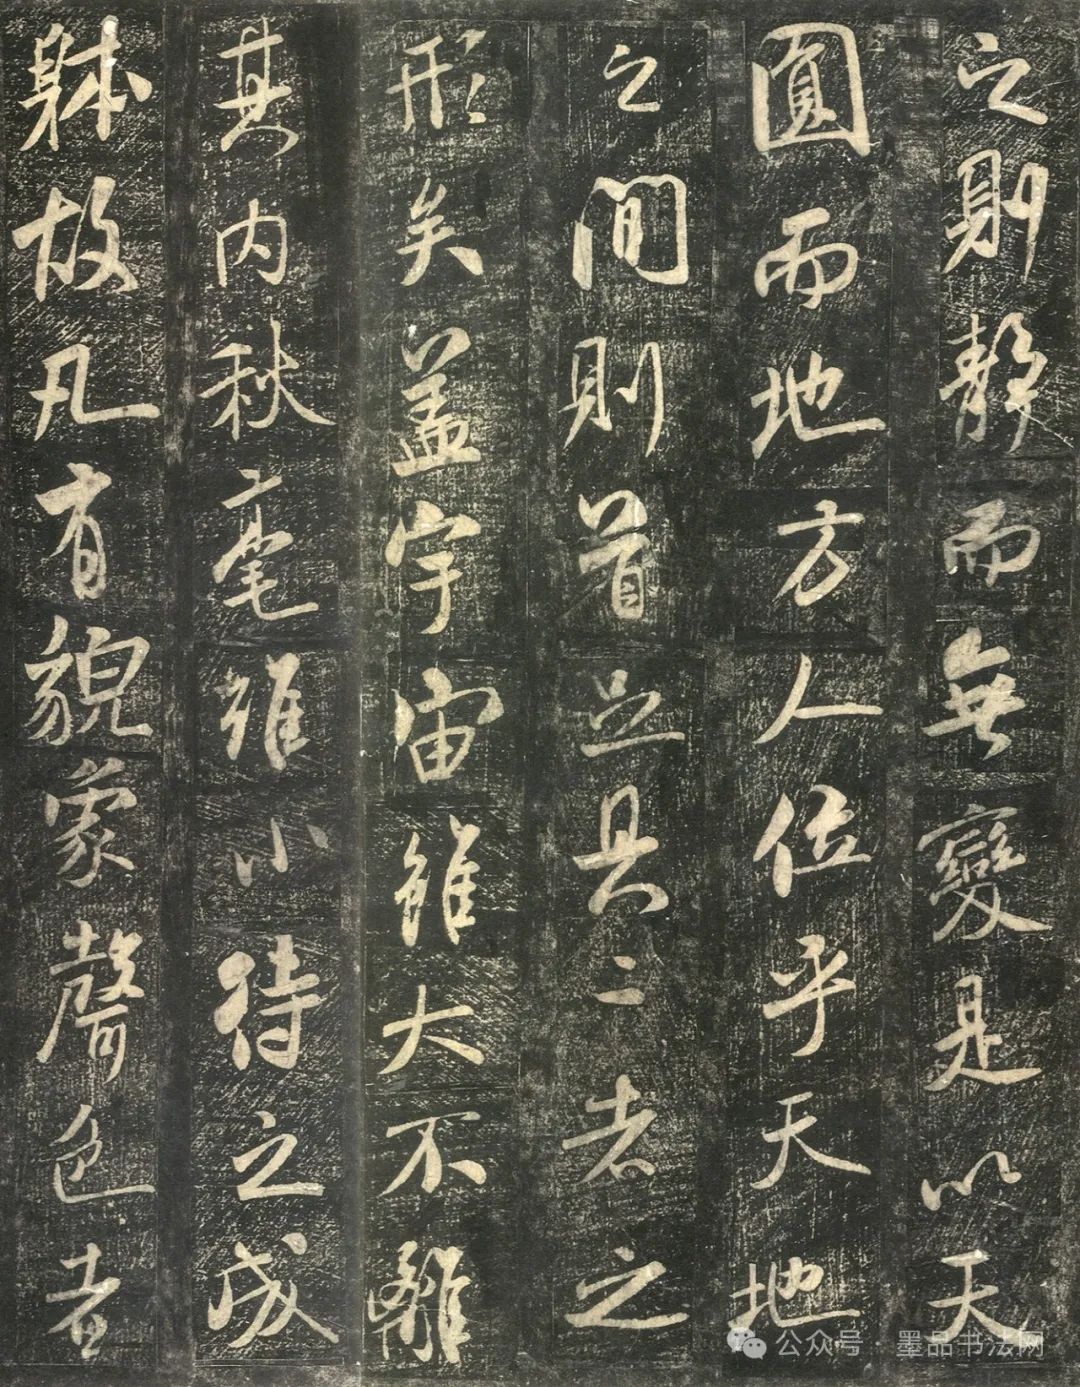 之則靜而無變是以天
圓而地方人位乎天地
之間則首足具二者之
形矣蓋宇宙雖大不離
其内秋毫雖小待之成
躰故凡有貌象聲色者
公众号·墨品书法网